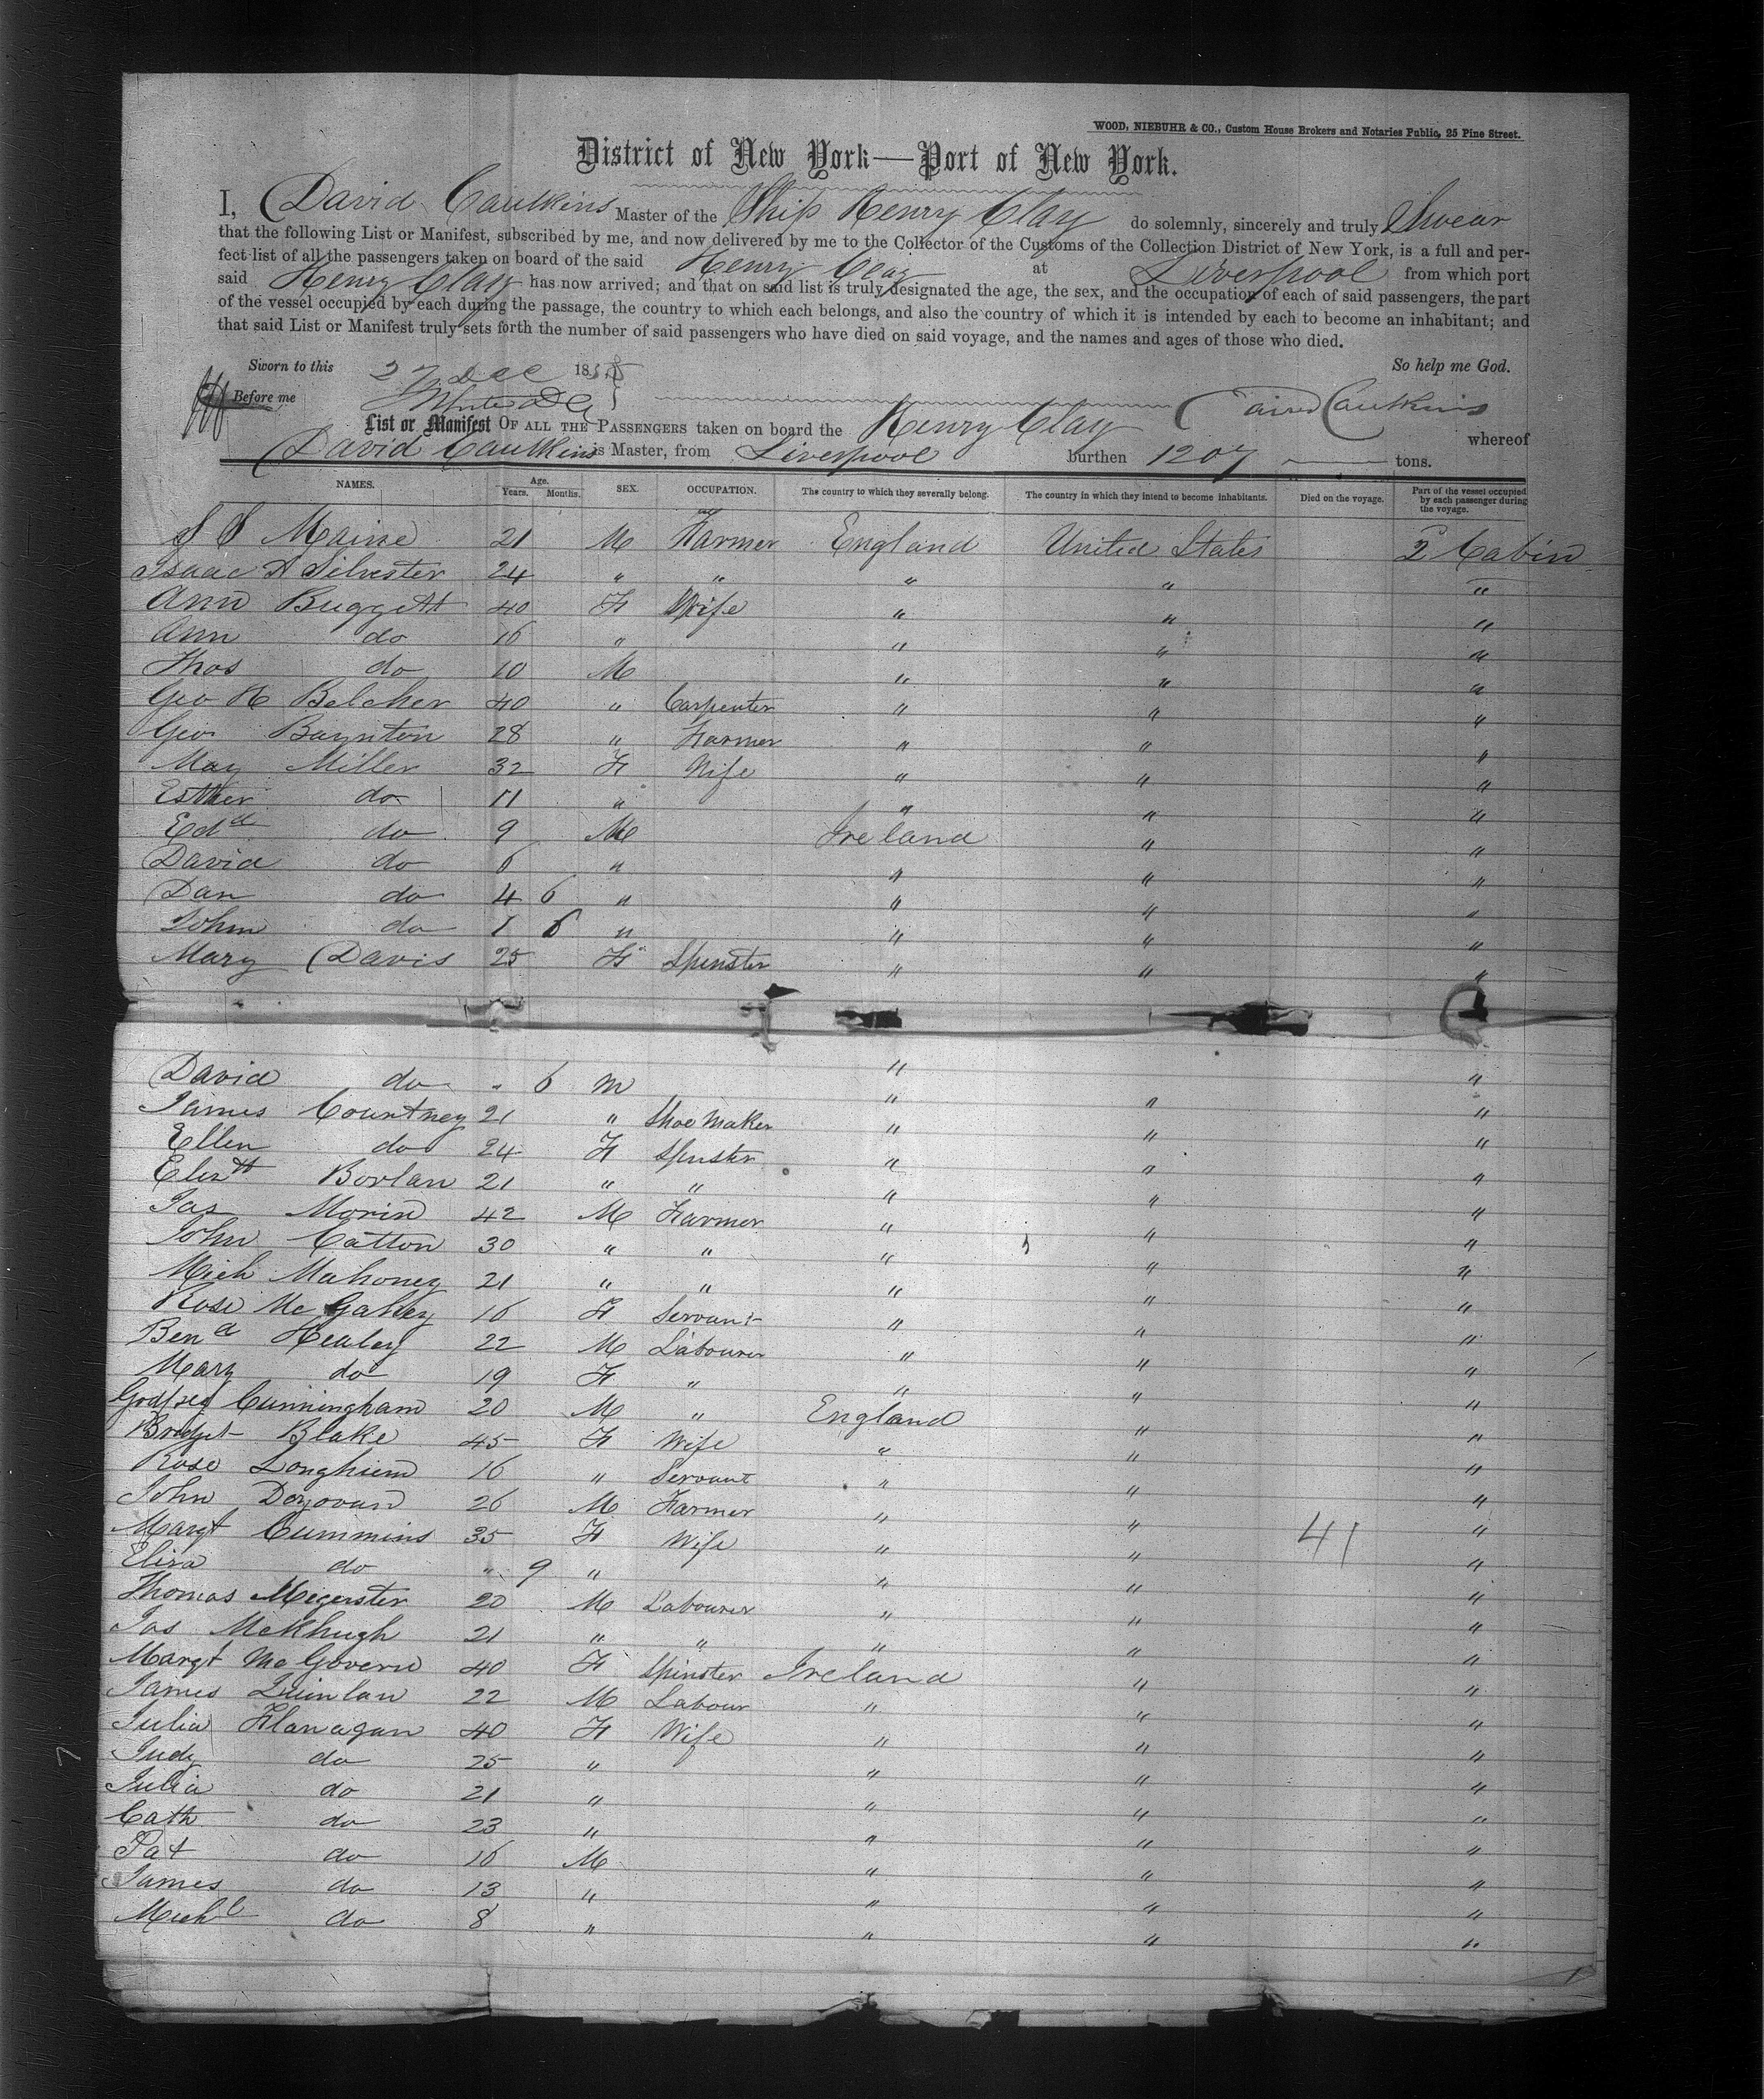 WOOD, NIEBUHR & CO., Custom House Brokers and Notaries Public, 25 Pine Street.
District of New York—Port of New York.
I, David Caulkins Master of the Ship Henry Clay do solemnly, sincerely and truly Swear
that the following List or Manifest, subscribed by me, and now delivered by me to the Collector of the Customs of the Collection District of New York, is a full and per-
fect list of all the passengers taken on board of the said Henry Clay at Liverpool from which port
said Henry Clay has now arrived; and that on said list is truly designated the age, the sex, and the occupation of each of said passengers, the part
of the vessel occupied by each during the passage, the country to which each belongs, and also the country of which it is intended by each to become an inhabitant; and
that said List or Manifest truly sets forth the number of said passengers who have died on said voyage, and the names and ages of those who died.
Sworn to this 27 Dec 1855 So help me God.
Before me David Caulkins
List or Manifest OF ALL THE PASSENGERS taken on board the Henry Clay whereof
David Caulkins is Master, from Liverpool burthen 1207 tons.
NAMES. Age. Years. Months. SEX. OCCUPATION. The country to which they severally belong. The country in which they intend to become inhabitants. Died on the voyage. Part of the vessel occupied by each passenger during the voyage.
S S Maine 21 M Farmer England United States 2 Cabin
Isaac A Silvester 24 " " " " "
Ann Buggett 40 F Wife " " "
Ann do 16 " " " "
Thos do 10 M " " "
Geo H Belcher 40 " Carpenter " " "
Geo Baynton 28 " Farmer " " "
May Miller 32 F Wife " " "
Esther do 11 " " " "
Edd do 9 M Ireland " "
David do 6 " " " "
Dan do 4 6 " " " "
John do 1 6 " " " "
Mary Davis 25 F Spenster " " "
David do " 6 M " "
James Courtney 21 " Shoe Maker " " "
Ellen do 24 F Spenster " " "
Elizth Borlan 21 " " " " "
Jas Morin 42 M Farmer " " "
John Catton 30 " " " " "
Mich Mahoney 21 " " " " "
Rose Mc Gahey 16 F Servant " " "
Bend Healey 22 M Labourer " " "
Mary do 19 F " " " "
Godfrey Cunningham 20 M " England " "
Bridget Blake 45 F Wife " " "
Rose 16 " Servant " " "
John Donovan 26 M Farmer " " "
Margt Cummins 35 F Wife " " 41 "
Eliza do " 9 " " " "
Thomas 20 M Labourer " " "
Jas McKhugh 21 " " " " "
Margt Mc Govern 40 F Spinster Ireland " "
James Quinlan 22 M Labour " " "
Julia Flanagan 40 F Wife " " "
Judy do 25 " " " "
Julia do 21 " " " "
Cath do 23 " " " "
Pat do 16 M " " "
James do 13 " " " "
Michl do 8 " " " "